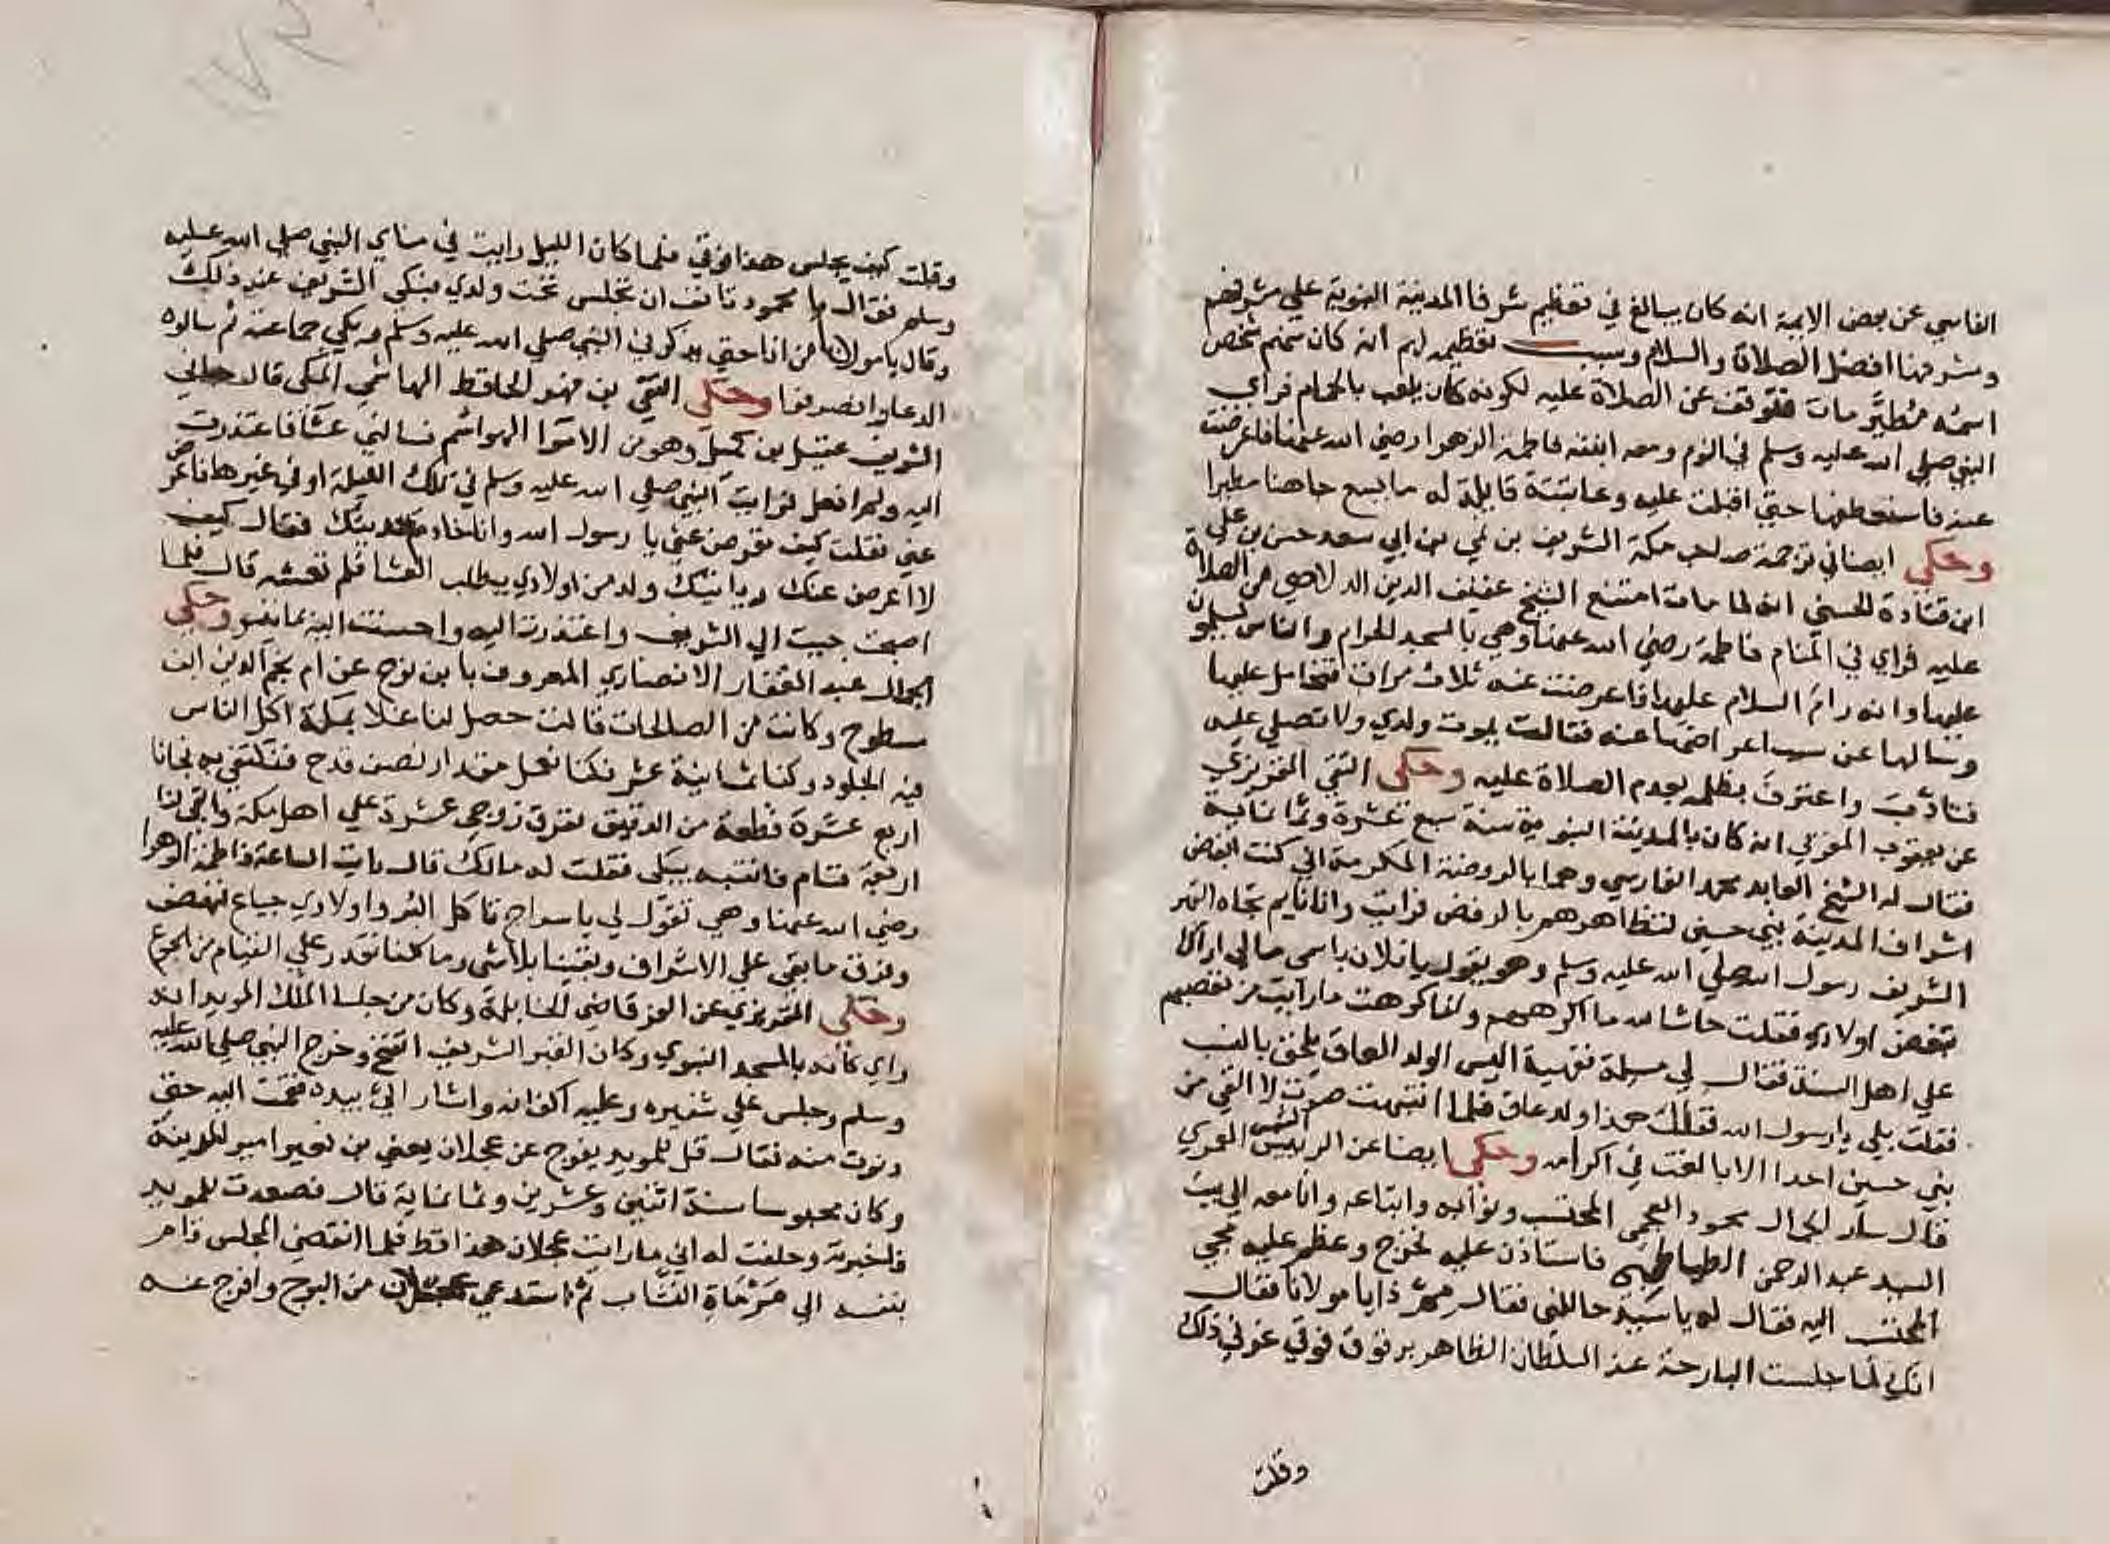 الفاسي عن بعض الايمة انه كان يبالغ في تعظيم شرفا المدينة النبوية علي مشرفهم
ومشرفها افضل الصلاة والسلام وسبب تعظيمه لهم انه كان منهم شخص
اسمه مطير مات فتوقف عن الصلاة عليه لكونه كان يلعب بالحمام فراي
النبي صلي الله عليه وسلم في النوم ومعه ابنته فاطمة الزهرا رضي الله عنها فاعرضت
عنه فاستعطفها حتي اقبلت عليه وعاتبته قايلة له ما يسع جاهنا مطيرا
وحكي ايضا في ترجمة صاحب مكة الشريف بن نمي بن ابي سعد حسن بن علي
ابن قتادة الحسني انه لما مات امتنع الشيخ عفيف الدين الدلاصي من الصلاة
عليه فراي في المنام فاطمة رضي الله عنها وهي بالمسجد الحرام والناس يسلمون
عليها وانه رام السلام عليها فاعرضت عنه ثلاث مرات فتحامل عليها
وسالها عن سبب اعراضها عنه فقالت يموت ولدي ولا تصلي عليه
فتادب واعترف بظلمه بعدم الصلاة عليه وحكي التقي المقريزي
عن يعقوب المغربي انه كان بالمدينة النبوية سنة سبع عشرة وثمانماية
فقال له الشيخ العابد محمد الفارسي وهما بالروضة المكرمة اني كنت ابغض
اشراف المدينة بني حسين لتظاهرهم بالرفض فرايت وانا نايم تجاه القبر
الشريف رسول الله صلي الله عليه وسلم وهو يقول يا فلان باسمي ما لي اراك
تبغض اولادي فقلت حاشا لله ما اكرههم وانما كرهت ما رايت من تعصبهم
علي اهل السنة فقال لي مسلة فقهية اليس الولد العاق يلحق بالنسب
فقلت بلي يا رسول الله فقال هذا ولد عاق فلما انتبهت صرت لا القي من
بني حسين احدا الا بالغت في اكرامه وحكي ايضا عن الرئيس الشمس العمري
قال سار الجمال محمود العجمي المحتسب ونوابه واتباعه وانا معه الي بيت
السيد عبد الرحمن الطباطبي فاستاذن عليه فخرج وعظم عليه مجي
المحتسب اليه فقال له يا سيد حاللني فقال مم ذا يا مولانا فقال
انك لما جلست البارحة عند السلطان الظاهر برقوق فوقي عز في ذلك
وقلت
وقلت كيف يجلس هذا فوقي فلما كان الليل رايت في منامي النبي صلي الله عليه
وسلم فقال يا محمود تانف ان تجلس تحت ولدي فبكي الشريف عند ذلك
وقال يا مولانا من انا حتي يذكرني النبي صلي الله عليه وسلم وبكي جماعة ثم سالوه
الدعا وانصرفوا وحكي التقي بن فهد الحافظ الهاشمي المكي قال جاني
الشريف عقيل بن هميل وهو من الامرا الهواشم فسالني عشا فاعتذرت
اليه ولم افعل فرايت النبي صلي الله عليه وسلم في تلك الليلة او في غيرها فاعرض
عني فقلت كيف تعرض عني يا رسول الله وانا خادم حديثك فقال كيف
لا اعرض عنك وياتيك ولد من اولادي يطلب العشا فلم تعشه قال فلما
اصبحت جيت الي الشريف واعتذرت اليه واحسنت اليه بما تيسر وحكي
الجمال عبد الغفار الانصاري المعروف بابن نوح عن ام نجم الدين ابن
مطروح وكانت من الصالحات قالت حصل لنا غلا بمكة اكل الناس
فيه الجلود وكنا ثمانية عشر فكنا نعمل مقدار نصف قدح فنكتفي به فجانا
اربع عشرة قطعة من الدقيق ففرق زوجي عشرة علي اهل مكة وابقي لنا
اربعة فنام فانتبه يبكي فقلت له مالك قال رايت الساعة فاطمة الزهرا
رضي الله عنها وهي تقول لي يا سراج تاكل البر واولادي جياع فنهض
وفرق ما بقي علي الاشراف وبقينا بلا شي وما كنا نقدر علي القيام من الجوع
وحكي المقريزي عن العز قاضي الحنابلة وكان من جلسا الملك المويد انه
راي كانه بالمسجد النبوي وكان القبر الشريف انفتح وخرج النبي صلي الله عليه
وسلم وجلس علي شفيره وعليه اكفانه واشار الي بيده فقمت اليه حتي
دنوت منه فقال قل للمويد يفرج عن عجلان يعني بن نعير امير المدينة
وكان محبوسا سنة اثنين وعشرين وثمانماية قال فصعدت للمويد
فاخبرته وحلفت له اني ما رايت عجلان هذا قط فلما انقضي المجلس قام
بنفسه الي مرماة النشاب ثم استدعي عجلان من البرج وافرج عنه